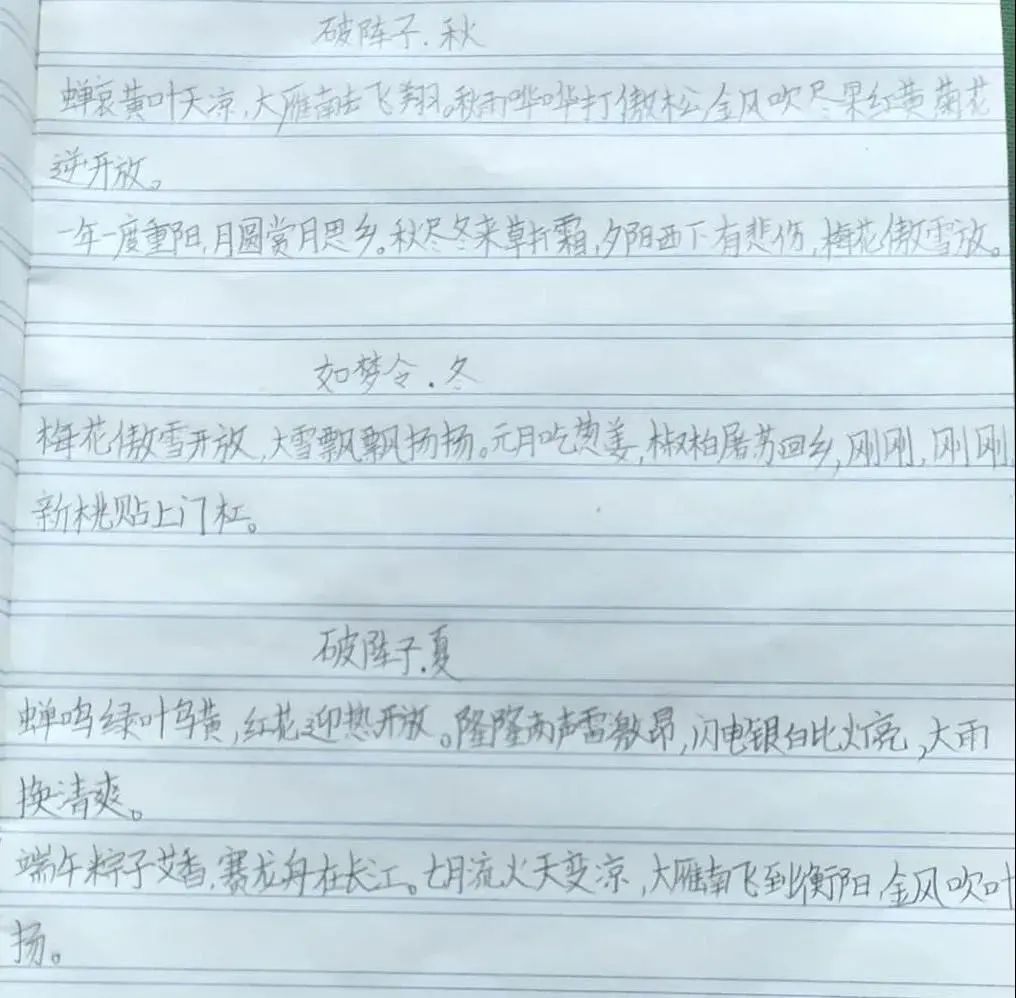 破阵子.秋
蝉哀黄叶天凉,大雁南去飞翔。秋雨哗哗打傲松,金风吹尽果红黄菊花
逆开放。
一年一度重阳,月圆赏月思乡。秋尽冬来草折霜,夕阳西下有悲伤,梅花傲雪放。
如梦令.冬
梅花傲雪开放,大雪飘飘扬扬。元月吃烫姜,椒柏屠苏回乡,刚刚,刚刚,
新桃贴上门杠。
破阵子.夏
蝉鸣绿叶鸟黄,红花迎热开放。隆隆雨声雷激昂,闪电银白比灯亮,大雨
换清爽。
端午粽子艾香,赛龙舟在长江。七月流火天变凉,大雁南飞到衡阳,金风吹叶
扬。